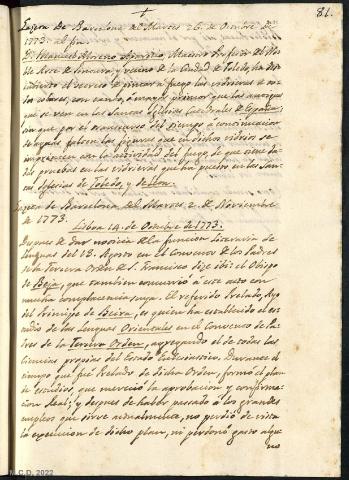 81.
Gazeta de Barcelona del Martes 26. de Octubre de
1773. al fin
Dn. Manuel Moreno Aparicio, Maestro Profesor del No-
ble Arte de Pintura y vecino de la Ciudad de Toledo, ha des-
cubierto el secreto de pintar a fuego las vidrieras de co-
lores, con tanto, ó mayor primor que las antiguas
que se ven en las Santas Iglesias Catedrales de España;
sin que por el transcurso del tiempo ó continuacion
de falten las figuras que en dichos vidrios se
impriman con la actividad del fuego de que tiene da-
das pruebas en las vidrieras que ha puesto en las San-
tas Iglesias de Toledo, y de Leon.
Gazeta de Barcelona del Martes 2. de Noviembre
de 1773.
Lisboa 14. de Octubre de 1773.
Despues de dar noticia de la funcion literaria de
lenguas del 18. Agosto en el Convento de los Padres
de la Tercera Orden de S. Francisco dize ibi: el Obispo
de Beja, que tambien concurrió á este acto con
mucha complacencia suya. El referido Prelado, Ayo
del Principe de Beira, es quien ha establecido el es-
tudio de las Lenguas Orientales en el Convento de Pa-
dres de la Tercera Orden, agregando el de todas las
ciencias propias del Estado Eclesiastico. Durante el
tiempo que fué Prelado de dicha Orden, formó el plan
de estudios que mereció la aprobacion y confirma-
cion Real; y despues de haber pasado á los grandes
empleos que sirve actualmente, no perdió de vista
la execucion de dicho plan, ni perdonó gasto algu-
no
M.C.D. 2022